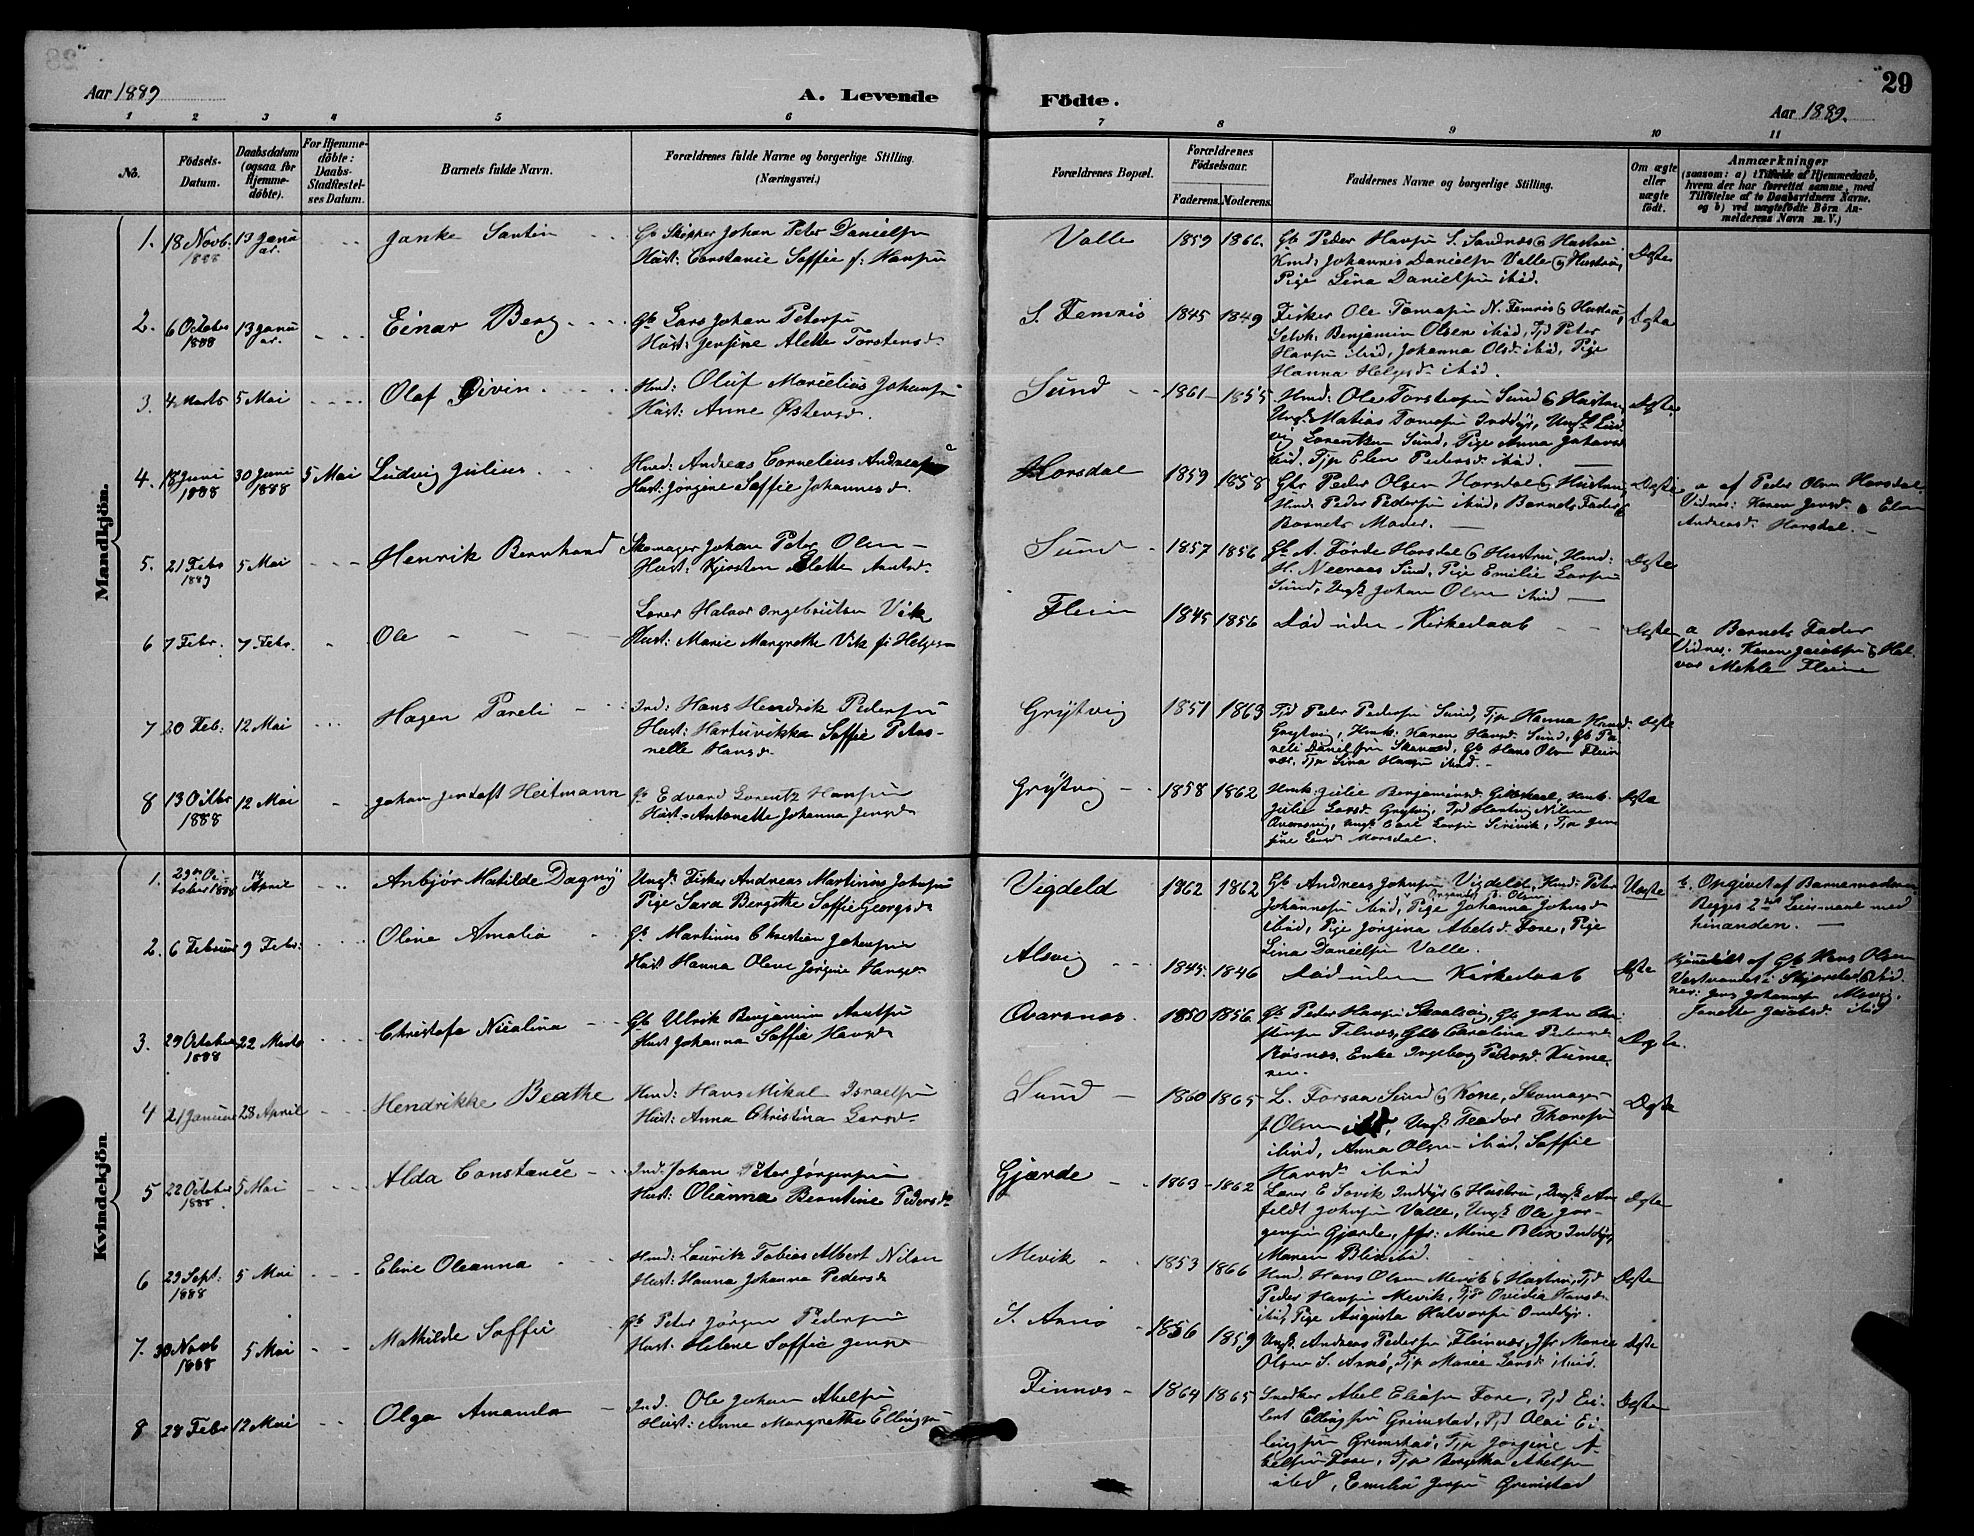 Aar 1889
A. Levende
Födte.
29
Aar 1889.
1 2 3 4 5 6 7 8 9 10 11
No.
Födsels-Datum.
Daabsdatum (ogsaa for Hjemmedöbte).
For Hjemmedöbte: Daabs-Stadfæstelses Datum.
Barnets fulde Navn.
Forældrenes fulde Navne og borgerlige Stilling. (Næringsvei.)
Forældrenes Bopæl.
Forældrenes Födselsaar.
Faderens. Moderens.
Faddernes Navne og borgerlige Stilling.
Om ægte eller uægte födt.
Anmærkninger
(saasom: a) i Tilfælde af Hjemmedaab, hvem der har forrettet samme, med Tilföielse af to Daabsvidners Navne, og b) ved uægtefödte Börn Anmelderens Navn m. V.)
Mandkjön.
1. 18 Novb. 1888 13 Januar
Gb Skipper Johan Peter Danielsen
Hust: Constance Soffie f: Hansen
Valle 1859 1866.
Gb Peder Hansen S. Sandnes & Hustru,
Kmd: Johannes Danielsen Valle & Hustru,
Pige Lina Danielsen ibid.
Ægte
2. 6 October 1888 13 Januar
Einar Berg
Gb Lars Johan Petersen
Hust: Jensine Alette Torstensd.
S. Femris 1845 1849
Fisker Ole Tomasen N. Femris & Hustru,
Selvh. Benjamin Olsen ibid, Tjd Peter
Hansen ibid, Johanna Olsd. ibid, Pige
Hanna Helgesd. ibid.
Ægte
3. 4 Marts 5 Mai
Olaf Eivin
Hmd: Oluf Marcelius Johansen
Hust: Anne Østensd.
Sund 1861 1855
Hmd: Ole Torstensen Sund & Hustru,
Ungk. Matias Tomasen Inddyr, Ungk. Lud-
vig Lorentzen Sund, Pige Anna Johansd.
ibid. Tjp Elen Pedersd. ibid.
Ægte
4. 18 Juni 1888 30 Juni 1888 5 Mai
Ludvig Julius
Hmd: Andreas Cornelius Andreasen
Hust: Jørgine Soffie Johannesd.
Horsdal 1859 1858
Gbr Peder Olsen Horsdal & Hustru,
Hmd: Peder Pedersen ibid, Barnets Fader &
Barnets Moder.
Ægte
a af Peder Olsen Horsdal.
Vidner: Karen Jensd. & Elen
Andreasd. Horsdal.
5. 21 Febr 1889 5 Mai
Henrik Bernhard
Skomager Johan Peter Olsen
Hust: Kjersten Elette Arntsd.
Sund 1857 1856
Gb. A. Førde Horsdal & Hustru, Hmd:
H. Neeraas Sund, Pige Emilie Larsen
Sund, Ungk. Johan Olsen ibid
Ægte
6 7 Febr. 7 Febr.
Ole
Lærer Halvor Ingebrigtsen Vik
Hust: Marie Margrethe Vik f: Helgesen
Flein 1845 1856
Død uden Kirkedaab
Ægte
a Barnets Fader
Vidner: Karen Jacobsen & Hal-
vor Mehle Flein
7 20 Feb: 12 Mai
Hagen Pareli
Ind: Hans Hendrik Pedersen
Hust: Hartuvikka Soffie Petro-
nelle Hansd.
Grytvig 1851 1863
Tjd Peder Pedersen Sund, Tjp Hanna Hansd.
Grytvig, Hmk: Karen Hansd. Sund, Gb Pa-
reli Danielsen Skavnæs, Gb Hans Olsen Flein-
vær, Tjp Lina Hansen ibid.
Ægte
8 13 Octbr 1888 12 Mai
Johan Jentoft Heitmann
Gb Edvard Lorentz Hansen
Hust: Antonette Johanna Jensd.
Grytvig 1858 1862
Hmk: Julie Benjaminsd. Gildskaal, Hmk.
Julie Larsd. Grytvig, Tjd Hartvig Nilsen
Ægte
Kvindekjön.
1. 29 October 1888 14 April
Anbjør Matilde Dagny
Ungk: Fisker Andreas Martinus Johnsen
Pige Sara Bergitte Soffie Georgsd.
Vigdeld 1862 1862
Gb Andreas Johnsen Vigdeld, Kmd: Peter
Johannesen ibid, Pige Johanna Johnsd.
ibid, Pige Jørgina Abelsd. Fore, Pige
Lina Danielsen Valle.
Uægte
b. Opgivet af Barnemoderen
Begges 2det Leiermaal med
hinanden.
2. 6 Februar 9 Febr:
Oline Amalia
Gb. Martinus Christian Johansen
Hust Hanna Olene Jørgine Hansd.
Alsvig 1845. 1846
Død uden Kirkedaab
Ægte
Hjemmedøbt af Gb Hans Olsen
Vestvandet i Skjærstad & Vid-
ner: Jens Johannesen Mevig,
Janette Jacobsd. ibid
3. 29 October 1888 22 Marts
Christofa Nicolina
Gb Ulrik Benjamin Arntsen
Hust Johanna Soffie Hansd.
Oversnes. 1850 1856
Ægte.
4 21 Januar 28 April
Hendrikke Beathe
Hmd: Hans Mikal Israelsen
Hust: Anna Christina Larsd.
Sund 1860 1865
L. Forsaa Sund & Kone, Skomager
J Olsen ibid, Ungk. Teodor Thoresen
ibid, Anna Olsen ibid, Soffie
Hansd. ibid
Ægte
5 22 October 1888 5 Mai
Alda Constance
Ind: Johan Peter Jørgensen
Hust: Oleanna Berntine Pedersd.
Gjærde 1863 1862
Lærer E Sovik Inddyr & Hustru, Ungk. An-
feldt Johnsen Valle, Ungk. Ole Jør-
gensen Gjærde, Jfr: Mine Blix Inddyr,
Maren Blix ibid.
Ægte
6 29 Sept: 1888 5 Mai
Eline Oleanna
Hmd: Laurik Tobias Albert Nilsen
Hust: Hanna Johanna Pedersd.
Mevik 1853 1866
Hmd. Hans Olsen Mevik & Hustru, Tjd
Peder Hansen Mevik, Tjp Ovidia Hansd.
ibid, Pige Augusta Halvorsen Inddyr.
Ægte
7. 30 Novb 1888 5 Mai
Mathilde Soffie
Gb Peter Jørgen Pedersen
Hust: Helene Soffie Jensd.
S. Arnø 1856 1859
Ungk. Andreas Pedersen Fleinvær, Jfr Marie
Olsen S. Arnø, Tjp Marie Larsd. ibid.
Ægte
8 28 Febr 12 Mai
Olga Amanda
Ind. Ole Johan Abelsen
Hust: Anne Margrethe Ellingsen
Finnæs 1864 1865
Snedker Abel Eliasen Fore, Tjd Ei-
lert Ellingsen Grimstad, Tjd Olai El-
lingsen Grimstad, Tjp Jørgine A-
belsen Fore, Tjp Bergitha Abelsen
ibid, Emilie Jensen Grimstad
Ægte